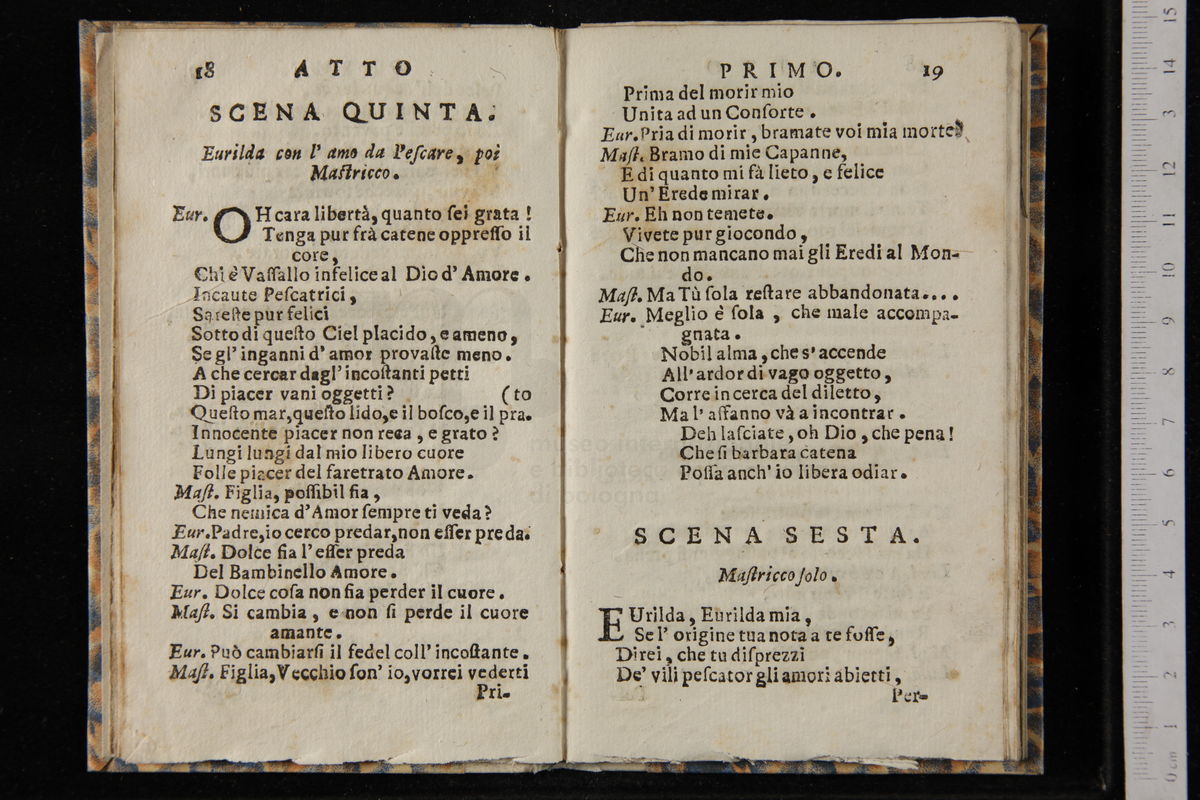 18 ATTO
SCENA QUINTA.
Eurilda con l' amo da Peſcare, poi
Maſtricco.
Eur. OH cara libertà, quanto ſei grata !
Tenga pur frà catene oppreſſo il
core,
Chi è Vaſſallo infelice al Dio d' Amore.
Incaute Peſcatrici,
Sareſte pur felici
Sotto di queſto Ciel placido, e ameno,
Se gl' inganni d' amor provaſte meno.
A che cercar dagl' incoſtanti petti
Di piacer vani oggetti ? (to
Queſto mar, queſto lido, e il boſco, e il pra.
Innocente piacer non reca, e grato ?
Lungi lungi dal mio libero cuore
Folle piacer del faretrato Amore.
Maſt. Figlia, poſſibil ſia,
Che nemica d'Amor ſempre ti veda ?
Eur. Padre, io cerco predar, non eſſer preda.
Maſt. Dolce ſia l' eſſer preda
Del Bambinello Amore.
Eur. Dolce coſa non ſia perder il cuore.
Maſt. Si cambia, e non ſi perde il cuore
amante.
Eur. Può cambiarſi il fedel coll' incoſtante.
Maſt. Figlia, Vecchio ſon' io, vorrei vederti
Pri-
PRIMO. 19
Prima del morir mio
Unita ad un Conſorte.
Eur. Pria di morir, bramate voi mia morte?
Maſt. Bramo di mie Capanne,
E di quanto mi fà lieto, e felice
Un' Erede mirar.
Eur. Eh non temete.
Vivete pur giocondo,
Che non mancano mai gli Eredi al Mon-
do.
Maſt. Ma Tù ſola reſtare abbandonata....
Eur. Meglio è ſola, che male accompa-
gnata.
Nobil alma, che s' accende
All' ardor di vago oggetto,
Corre in cerca del diletto,
Ma l' affanno và a incontrar.
Deh laſciate, oh Dio, che pena !
Che ſi barbara catena
Poſſa anch' io libera odiar.
SCENA SESTA.
Maſtricco ſolo.
EUrilda, Eurilda mia,
Se l' origine tua nota a te foſſe,
Direi, che tu diſprezzi
De' vili peſcator gli amori abietti,
Per-
museo inter
e biblioteca
di bologna
0 cm 1 2 3 4 5 6 7 8 9 10 11 12 3 14 15